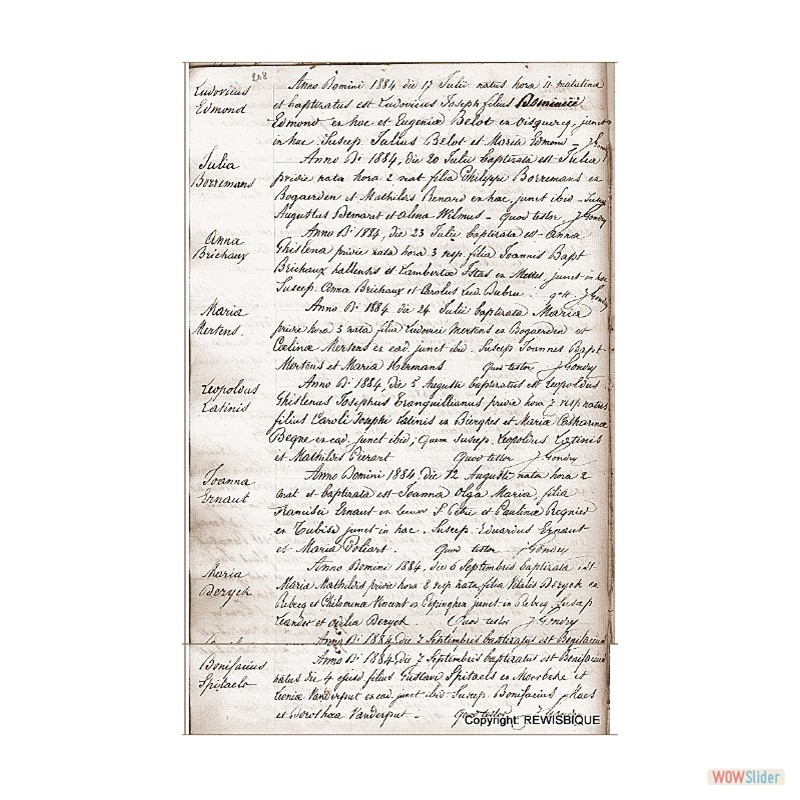 208
Ludovicus
Edmond
Anno Domini 1884 die 17 Julii natus hora 11 matutina
et baptizatus est Ludovicus Joseph filius Dominici
Edmond ex hac et Eugenia Belot ex Oisquercq, junct
in hac. Suscep. Julius Belot et Maria Edmond - J Gondry
Julia
Borremans
Anno Di 1884, die 20 Julii baptizata est Julia
pridie nata hora 2 mat filia Philippi Borremans ex
Bogaerden et Mathildis Renard ex hac, junct ibid - Suscep
Augustus Demaret et Alena Wilmus - Quod testor, J Gondry
Anna
Brichaux
Anno Di 1884, die 23 Julii baptizata est Anna
Ghislena pridie nata hora 3 vesp. filia Joannis Bapt
Brichaux hallensis et Lambertæ Istas ex Mettet junct in hac
Suscep. Anna Brichaux et Carolus Lud. Dubru. q.tt J Gondry
Maria
Mertens
Anno Di 1884 die 24 Julii baptizata Maria
pridie hora 5 nata filia Ludovici Mertens ex Bogaerden et
Cælinæ Mertens ex ead. junct ibid. Suscep Joannes Bapt
Mertens et Maria Hermans Quod testor J Gondry
Leopoldus
Latinis
Anno Di 1884, die 5 Augusti baptizatus est Leopoldus
Ghislenus Josephus Tranquillianus pridie hora 7 vesp natus
filius Caroli Josephi Latinis ex Bierghes et Mariæ Catharinæ
Begne ex ead. junct ibid; Quem Suscep. Leopoldus Latinis
et Mathildis Pierart Quod testor J Gondry
Joanna
Ernaut
Anno Domini 1884 die 12 Augusti nata hora 2
mat et baptizata est Joanna Olga Maria filia
Francisci Ernaut ex Leeuw S Petri et Paulinæ Regnier
ex Tubise junct in hac. Suscep. Eduardus Ernaut
et Maria Poliart. Quod testor J Gondry
Maria
Deryck
Anno Domini 1884, die 6 Septembris baptizata est
Maria Mathildis pridie hora 8 vesp nata filia Vitalis Deryck ex
Rebecq et Philomena Vincent ex Pepinghen junct in Rebecq Suscep
Leander et Odilia Deryck. Quod testor J Gondry
Anno Di 1884 die 7 Septembris baptizatus est Bonifacius
Bonifacius
Spitaels
Anno Di 1884 die 7 Septembris baptizatus est Bonifacius
natus die 4 ejusd filius Gustavi Spitaels ex Merrbeke et
Leoniæ Vanderput ex ead. junct ibid. Suscep. Bonifacius Maes
et Dorothæa Vanderput - Quod testor J Gondry
Copyright: REWISBIQUE
WOWSlider